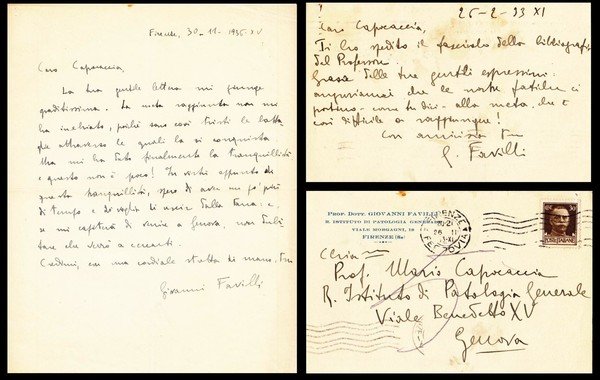 Firenze, 30-11-1936-XV
Caro Capocaccia,
La tua gentile lettera mi giunge
graditissima. La meta raggiunta non mi
ha inebriato, poiché sono così tristi le lotte
attraverso le quali la si conquista
Ma mi ha dato finalmente la tranquillità
e questo non è poco! In virtù appunto di
questa tranquillità, spero di avere un po' più
di tempo e di voglia di uscire dalla tana: e,
se mi capiterà di venire a Genova, non dubi
tare che verrò a cercarti.
Credimi, con una cordiale stretta di mano, tuo
Giovanni Favilli
26-2-33 XI
Caro Capocaccia,
Ti ho spedito il fascicolo della bibliografia
del Professore
Grazie delle tue gentili espressioni:
auguriamoci che le nostre fatiche ci
portino - come tu dici - alla meta, che è
così difficile a raggiungere!
Con amicizia tuo
G. Favilli
PROF. DOTT. GIOVANNI FAVILLI
R. ISTITUTO DI PATOLOGIA GENERALE
VIALE MORGAGNI,
FIRENZE
FIRENZE
FERROVIA
Prof. Mario Capocaccia
R. Istituto di Patologia Generale
Viale Benedetto XV
Genova